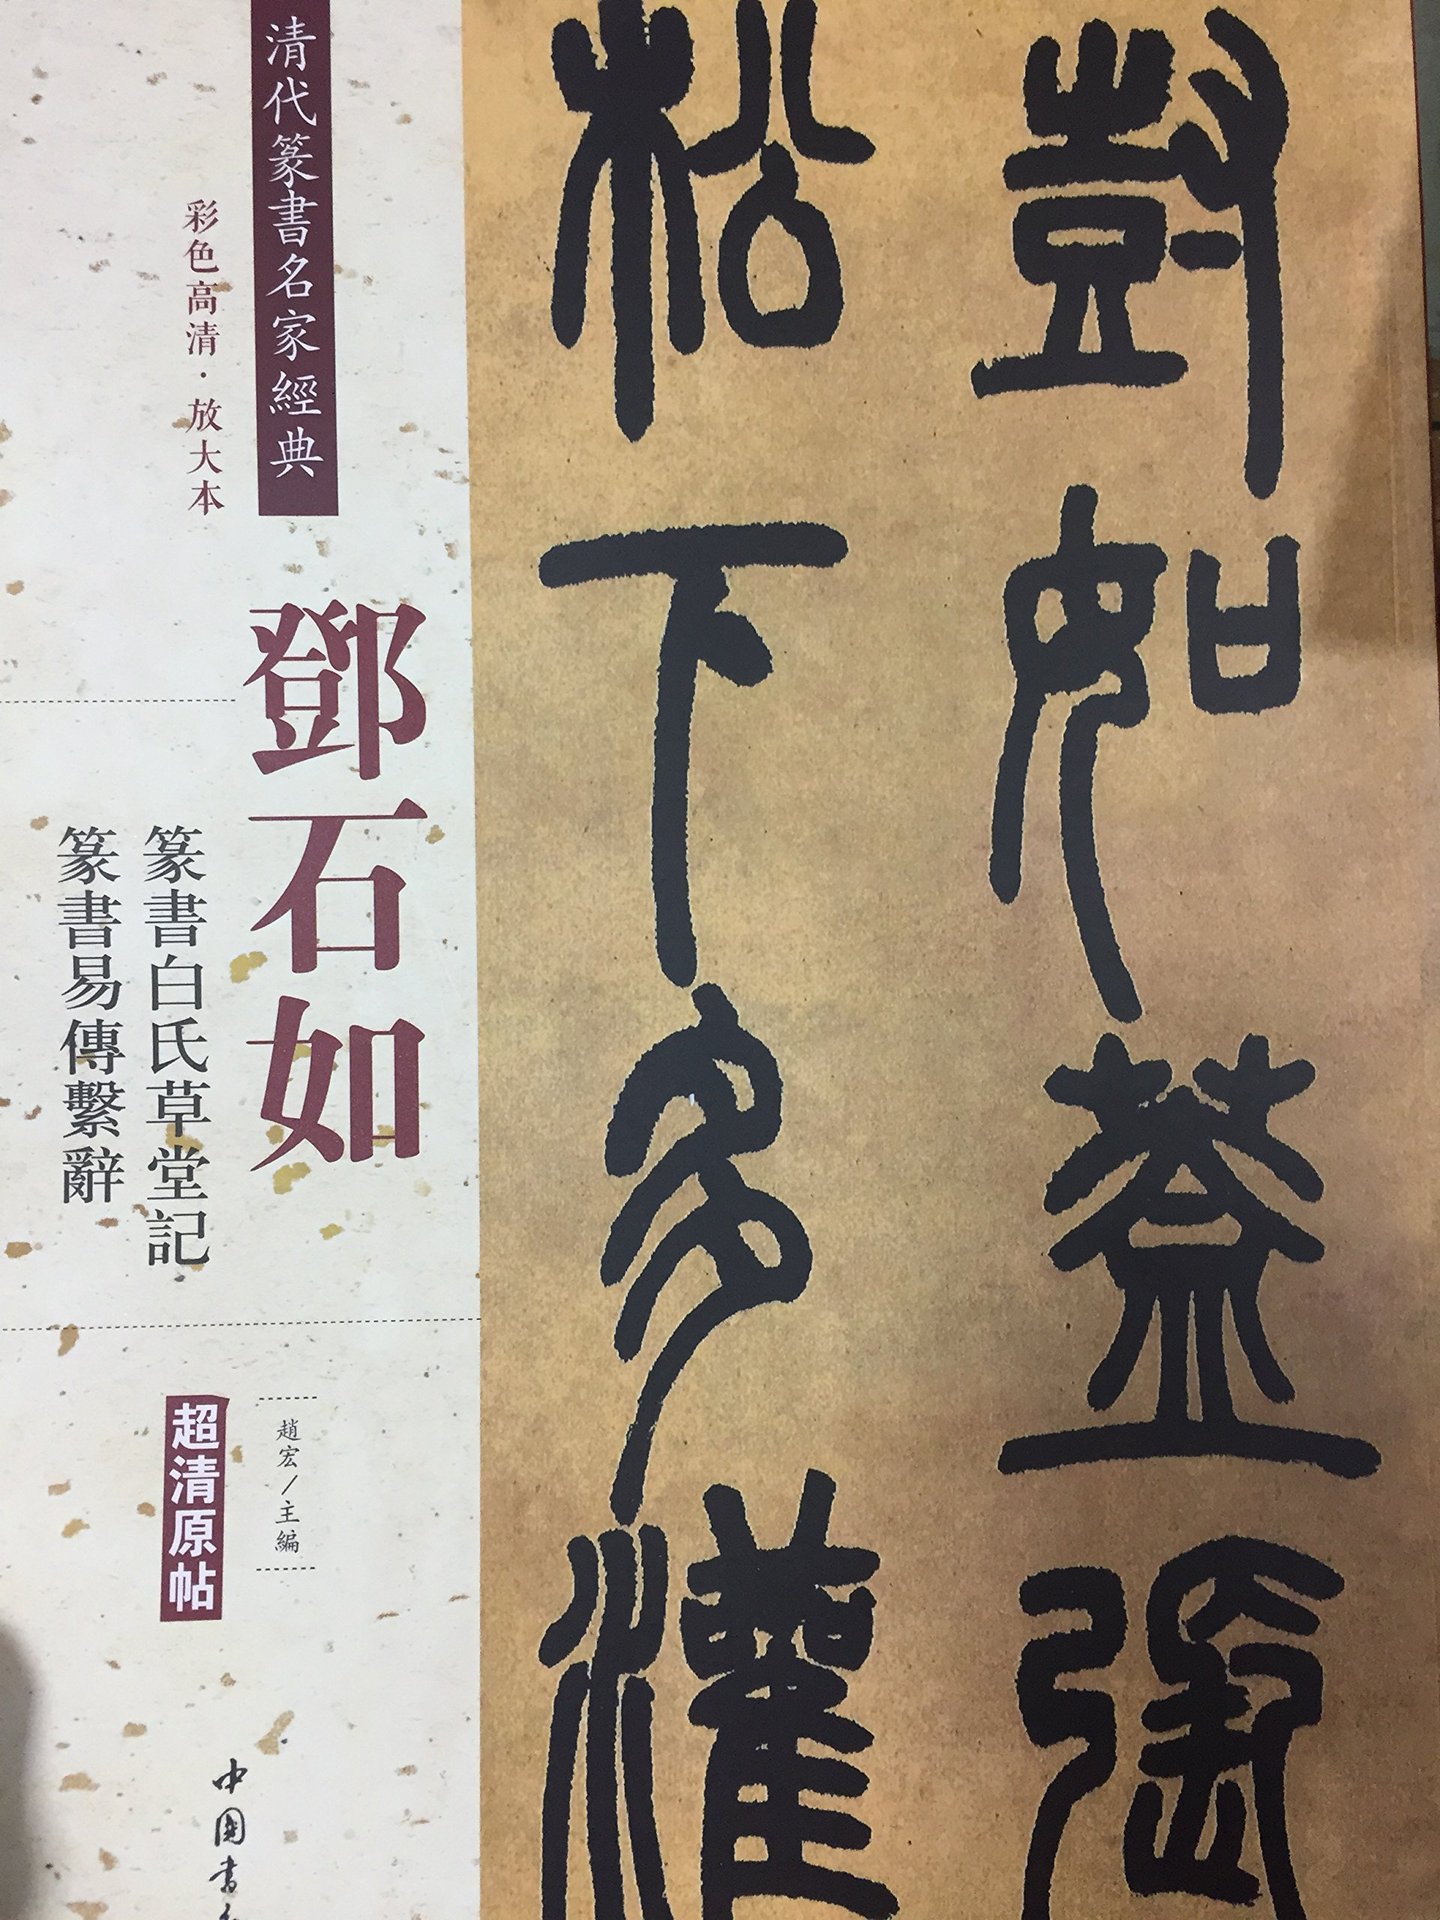 尌如蓋張
松下多灌
清代篆書名家經典
彩色高清·放大本
鄧石如
篆書白氏草堂記
篆書易傳繫辭
趙宏/主編
超清原帖
中國書